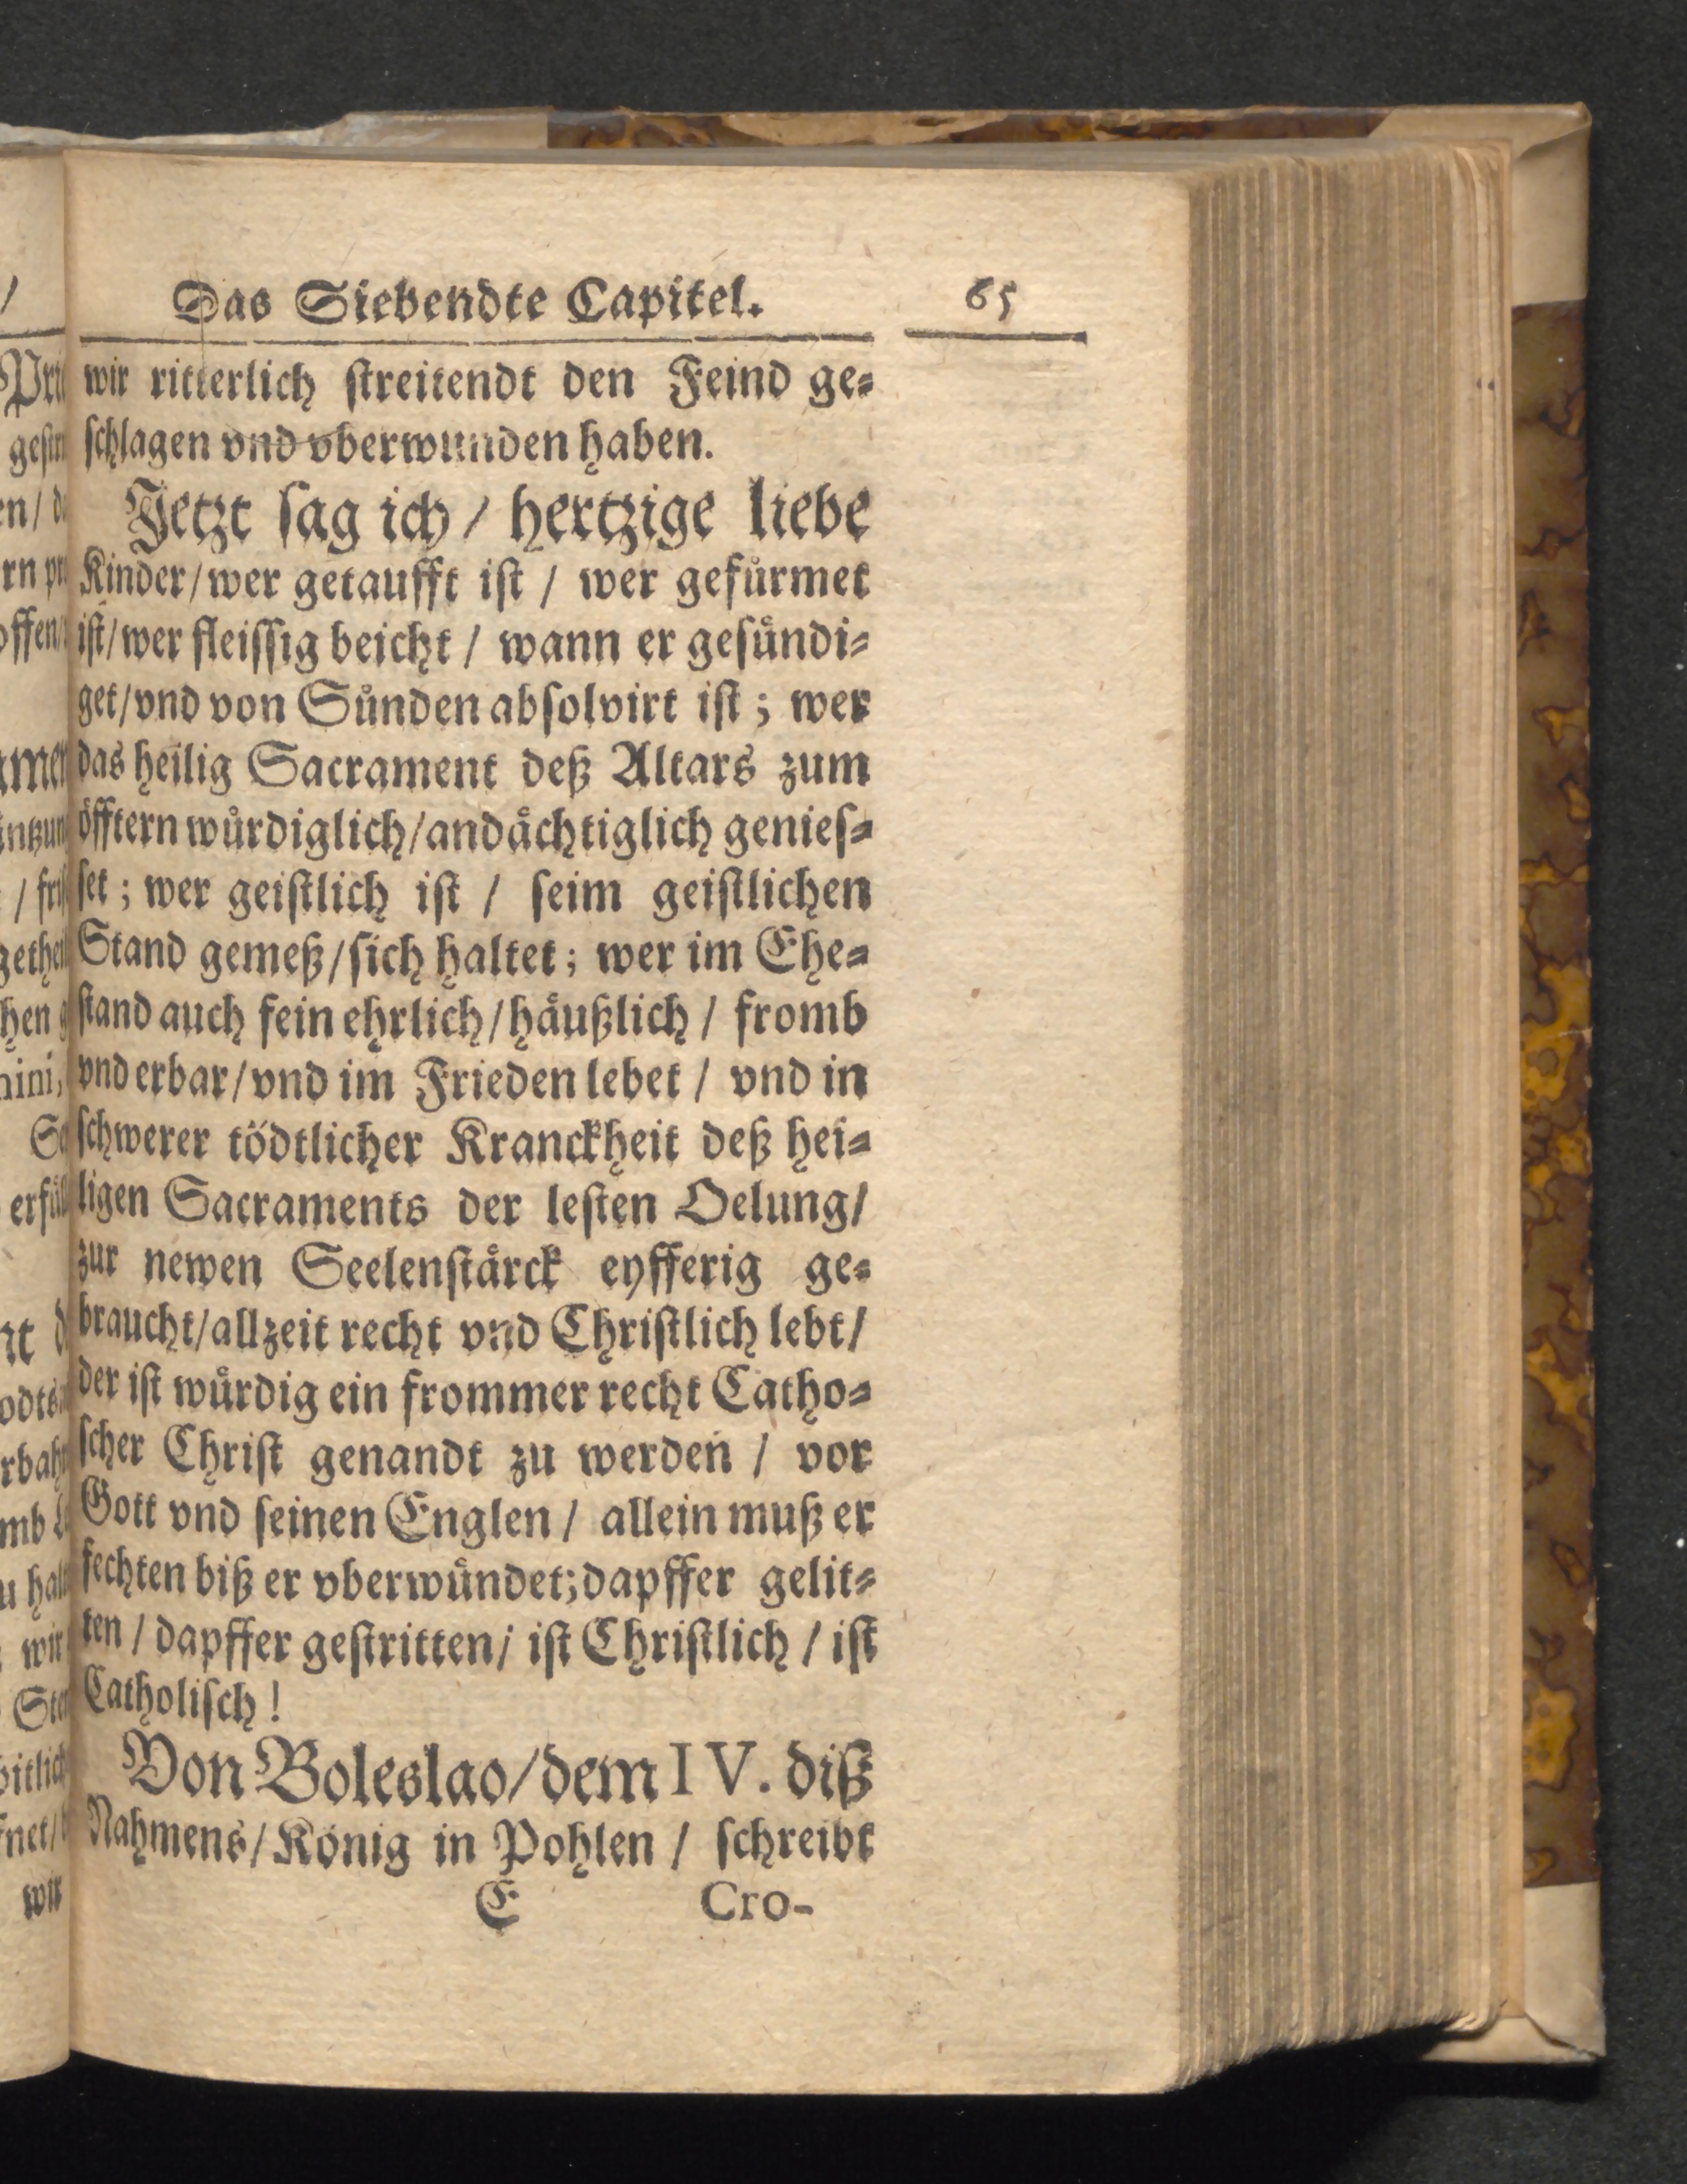 Das Siebendte Capitel. 65
wir ritterlich ſtreitendt den Feind ge⸗
ſchlagen vnd vberwunden haben.
Jetzt ſag ich / hertzige liebe
Kinder/wer getaufft iſt / wer gefuͤrmet
iſt/wer fleiſſig beicht / wann er geſuͤndi⸗
get/vnd von Suͤnden abſolvirt iſt ; wer
das heilig Sacrament deß Altars zum
öfftern wuͤrdiglich/andaͤchtiglich genieſ⸗
ſet ; wer geiſtlich iſt / ſeim geiſtlichen
Stand gemeß/ſich haltet ; wer im Ehe⸗
ſtand auch fein ehrlich/haͤußlich / fromb
vnd erbar/vnd im Frieden lebet / vnd in
ſchwerer tödtlicher Kranckheit deß hei⸗
ligen Sacraments der leſten Oelung/
zur newen Seelenſtaͤrck eyfferig ge⸗
braucht/allzeit recht vnd Chriſtlich lebt/
der iſt wuͤrdig ein frommer recht Catho⸗
ſcher Chriſt genandt zu werden / vor
Gott vnd ſeinen Englen / allein muß er
fechten biß er vberwuͤndet; dapffer gelit⸗
ten / dapffer geſtritten/ iſt Chriſtlich / iſt
Catholiſch !
Von Boleslao/dem IV. diß
Nahmens/König in Pohlen / ſchreibt
E Cro-